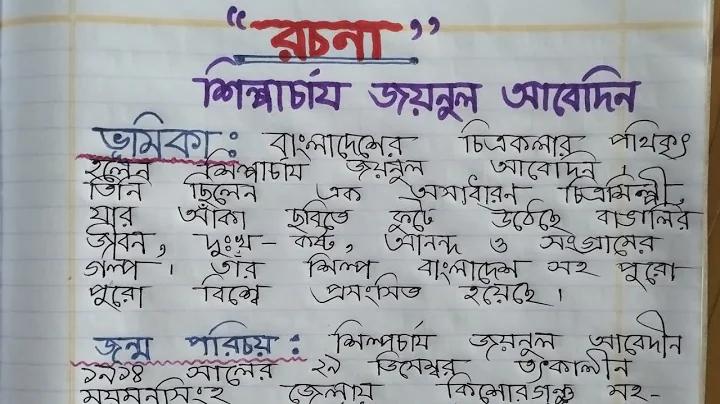 “রচনা”
শিল্পাচার্য জয়নুল আবেদিন
ভূমিকা : বাংলাদেশের চিত্রকলার পথিকৃৎ
হলেন শিল্পাচার্য জয়নুল আবেদিন ।
তিনি ছিলেন এক অসাধারণ চিত্রশিল্পী,
যার আঁকা ছবিতে ফুটে উঠেছে বাঙালির
জীবন, দুঃখ-কষ্ট, আনন্দ ও সংগ্রামের
গল্প । তাঁর শিল্প বাংলাদেশ সহ পুরো
পুরো বিশ্বে প্রসংসিত হয়েছে ।
জন্ম পরিচয় : শিল্পচার্য জয়নুল আবেদীন
১৯১৪ সালের ২৯ ডিসেম্বর তৎকালীন
ময়মনসিংহ জেলায় কিশোরগঞ্জ মহ-